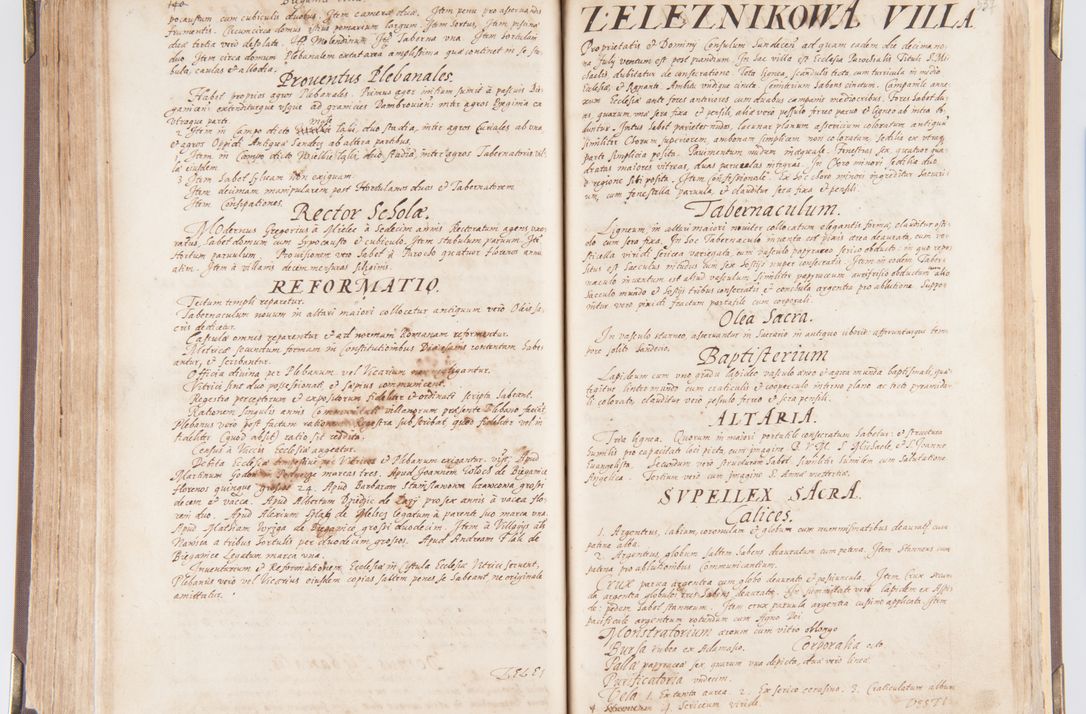 140
pocaustum cum cubiculis duobus. Item cameræ duæ. Item penu pro asservandis
frumentis. Circumcirca domus situa pomarium largum. Item hortus. Item piscinæ
duæ tertia vero desolata. Molendinum Taberna vna. Item hortulani
duo. Item circa domum Plebanalem extat area amplissima quæ continet in se sta
bula, caulas et allodia.
Proventus Plebanales.
Habet proprios agros Plebanales. Primus ager initium sumit à pascuis Bie
ganicen: extenditurque vsque ad granicies Dambrovien: inter agros Bieganicia ex
vtraque parte.
2. Item in Campo dicto Wielkie Pola, duo stadia, inter agros Curiales ab vna
et agros Oppid: Antiquæ Sandec ab altera partibus.
Item in Campo dicto Wielkie Pola, duo stadia, inter agros Tabernatoris vil
la eiusdem.
3. Item habet sylvam non exiguam.
Item decimam manipularem post Hortulanos duos et Tabernatorem
Item Consepationes.
Rector Scholæ.
Modernus Gregorius à Mielec à sedecim annis Rectoratum agens vxo
ratus, habet domum cum hypocausto et cubiculo. Item stabulum parvum. Itē
Hortum parvulum. Provisionem vero habet à Parocho quatuor florenos annu
atim. Item à villanis decem mensuras siliginis.
REFORMATIO.
Tectum templi reparetur.
Tabernaculum nouum in altari maiori collocetur antiquum vero Oleis sa
cris dedicetur.
Casulæ omnes reparentur et ad normam Romanam reformentur.
Metricæ secundum formam in Constitutionibus Diæcesanis contentam habe
antur, et scribantur.
Officia divina per Plebanum vel Vicarium non negligantur.
Vitrici sint duo possessionati et sæpius communicent.
Regestra perceptorum et expositorum fideliter et ordinatè scripta habeant.
Rationem singulis annis Communitati villanorum præsente Plebano faciāt
Plebanus vero post factam rationem Regestra subscribat, quod fideliter vel in
fideliter (quod absit) ratio sit reddita.
Census à Vaccis Ecclesiæ augeatur.
Debita Ecclesiæ per Vitricos et Plebanum exigantur. vizt Apud
Martinum marcas tres. Apud Joannem Golosz de Biegonice
florenos quinque grossos 24. Apud Barbaram Stanislawowa grossi
decem et vacca. Apud Albertum pro sex annis à vacca flo
reni duo. Apud Alexium legatum à parente suo marca vna.
Apud Mathiam de Biegonice grossi duodecim. Item à Villanis als
à tribus hortulis per duodecim grossos. Apud Andream de
Biegonice Legatum marca vna.
Inventarium et Reformationem Ecclesiæ in Cistula Ecclesiæ Vitrici servent,
Plebanus vero vel Vicarius eiusdem copias saltem penes se habeant ne originale
amittatur.
ZELEZ
337
ZELEZNIKOWA VILLA
Proprietatis et Dominij Consulum Sandecen: ad quam eadem die decimano
na July ventum est post prandium. In hac villa est Ecclesia Parochialis Tituli S. Mi
chaelis, dubitatur de consecratione. Tota lignea, scandulis tecta, cum turricula in medio
Ecclesiæ, et signante. Ambitu vndique cincta. Cœmiterium habens cinctum. Campanile anne
xum Ecclesiæ ante fores anteriores cum duabus campanis mediocribus. Fores habet du
as, quarum vna sera fixa et pensili, alia vero pessulo ferreo parvo et ligneo ab intra cla
duntur. Intus habet parietes nudos, lacunar planum assericium coloratum antiquū
similiter Chorum superiorem, ambonem simplicem non coloratum. Sedilia ex vtraque
parte simplicia posita. Pavimentum nudum inæquale. Fenestras sex, quatuor qua
dratas maiores vitreas, duas parvulas integras. In Choro minori sedilia duo
è regione sibi posita. Item confessionale. Ex hoc choro minori ingreditur Sacrari
um, cum fenestella parvula et clauditur sera fixa et pensili.
Tabernaculum.
Ligneum, in altari maiori noviter collocatum elegantis formæ, clauditur osti
olo cum sera fixa. In hoc Tabernaculo inventa est pixis ærea deaurata, cum ve
sticella viridi sericea variegata, cum vasculo papyraceo serico obducto, in quo repo
situs est sacculus nitidus cum sex hostijs nuper consecratis. Item in eodem Taber
naculo inventum est aliud vasculum similiter papyraceum aurifrisio obductum alio
sacculo mundo et hostijs tribus consecratis et conchula argentea pro ablutione. Suppo
nitur vero pixidi fractum portatile cum corporali.
Olea Sacra.
In vasculo eburneo, asservantur in sacrario in antiquo ciborio: afferunturque tem
pore solito Sandecio.
Baptisterium
Lapideum cum vno gradu lapideo vasculo æneo et aqua munda baptismali, quæ
tegitur linteo mundo cum craticulis et cooperculo interno plano ac tecto pyramida
li colorato, clauditur vero pessulo ferreo et sera pensili.
ALTARIA.
Tria lignea. Quorum in maiori portatile consecratum habetur: et structura
humilis pro capacitate loci picta, cum imagine B. V. M. S. Michaelis, et S. Joannis
Euangelistæ. Secundum vero structuram habet similiter humilem cum Salutatione
Angelica. Tertium vero cum imagine S. Annæ vetustiæ.
SVPELLEX SACRA.
Calices.
1. Argenteus, labium, coronulam et globum cum nummismatibus deauratis cum
patena alba.
2. Argenteus, globum saltem habens deauratum cum patena. Item stanneus cum
patena pro ablutionibus Communicantium.
Crux parva argentea cum globo deaurato et passiuncula. Item Crux secun
da argentea globulos tres habens deauratos. In summitate vero lapidem ex
de: pedem habet stanneum. Item crux parvula argentea cussino applicata. Item
pacificale argenteum rotundum cum Agno Dei
Monstratorium æreum cum vitro oblongo
Bursa rubea ex Adamasco. Corporalia octo.
Pallæ papyraceæ sex quarum vna depicta, duæ vero lineæ.
Purificatoria vndecim.
Vela 1. Ex tanta aurea. 2. Ex serico cerasino. 3. Craticulatum album
4. Sericeum viride.
VESTI